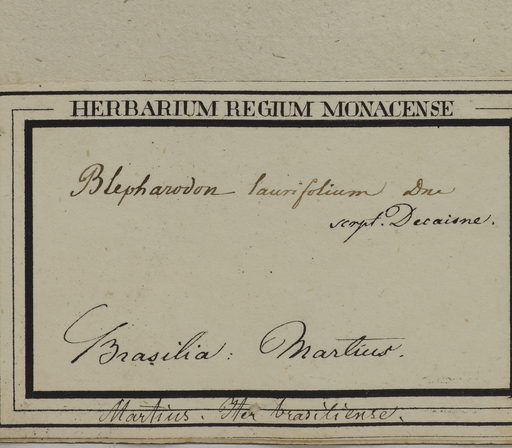 HERBARIUM REGIUM MONACENSE
Blepharodon laurifolium Dne
script. Decaisne.
Brasilia: Martius.
Martius. Iter brasiliense.